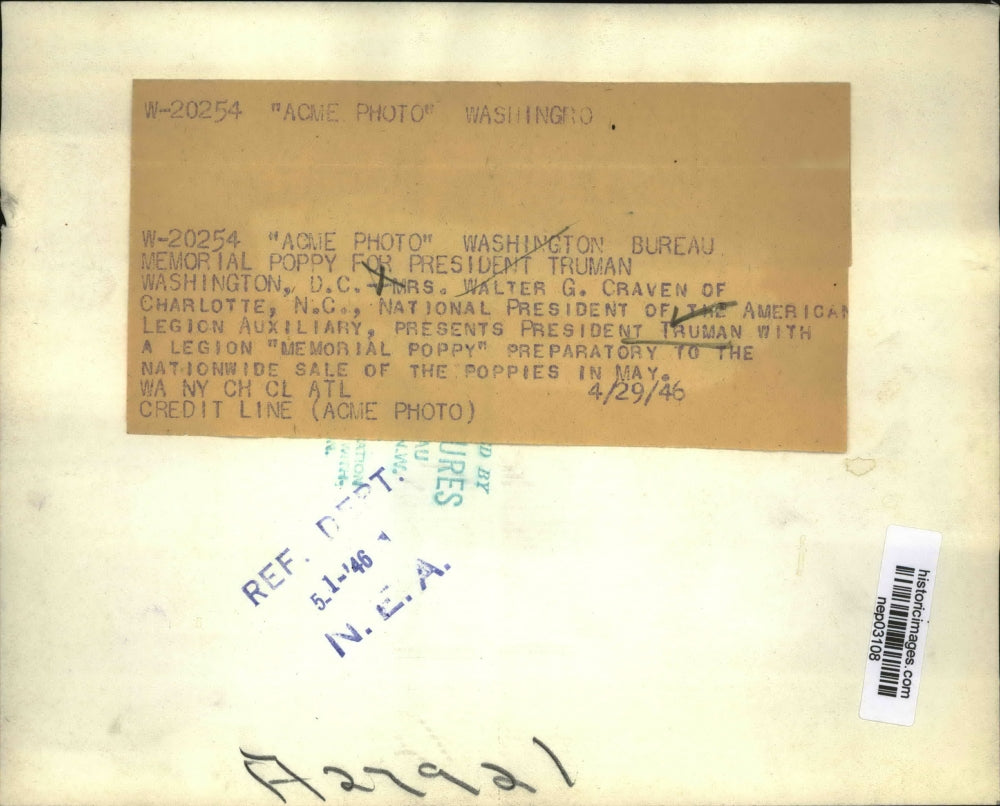 W-20254 "ACME PHOTO" WASHINGRO
W-20254 "ACME PHOTO" WASHINGTON BUREAU
MEMORIAL POPPY FOR PRESIDENT TRUMAN
WASHINGTON, D.C.--MRS. WALTER G. CRAVEN OF
CHARLOTTE, N.C., NATIONAL PRESIDENT OF THE AMERICAN
LEGION AUXILIARY, PRESENTS PRESIDENT TRUMAN WITH
A LEGION "MEMORIAL POPPY" PREPARATORY TO THE
NATIONWIDE SALE OF THE POPPIES IN MAY.
WA NY CH CL ATL 4/29/46
CREDIT LINE (ACME PHOTO)
D BY
URES
AU
N.W.
ATION
N.
REF. DEPT.
5-1-'46
N. E. A.
historicimages.com
nep03108